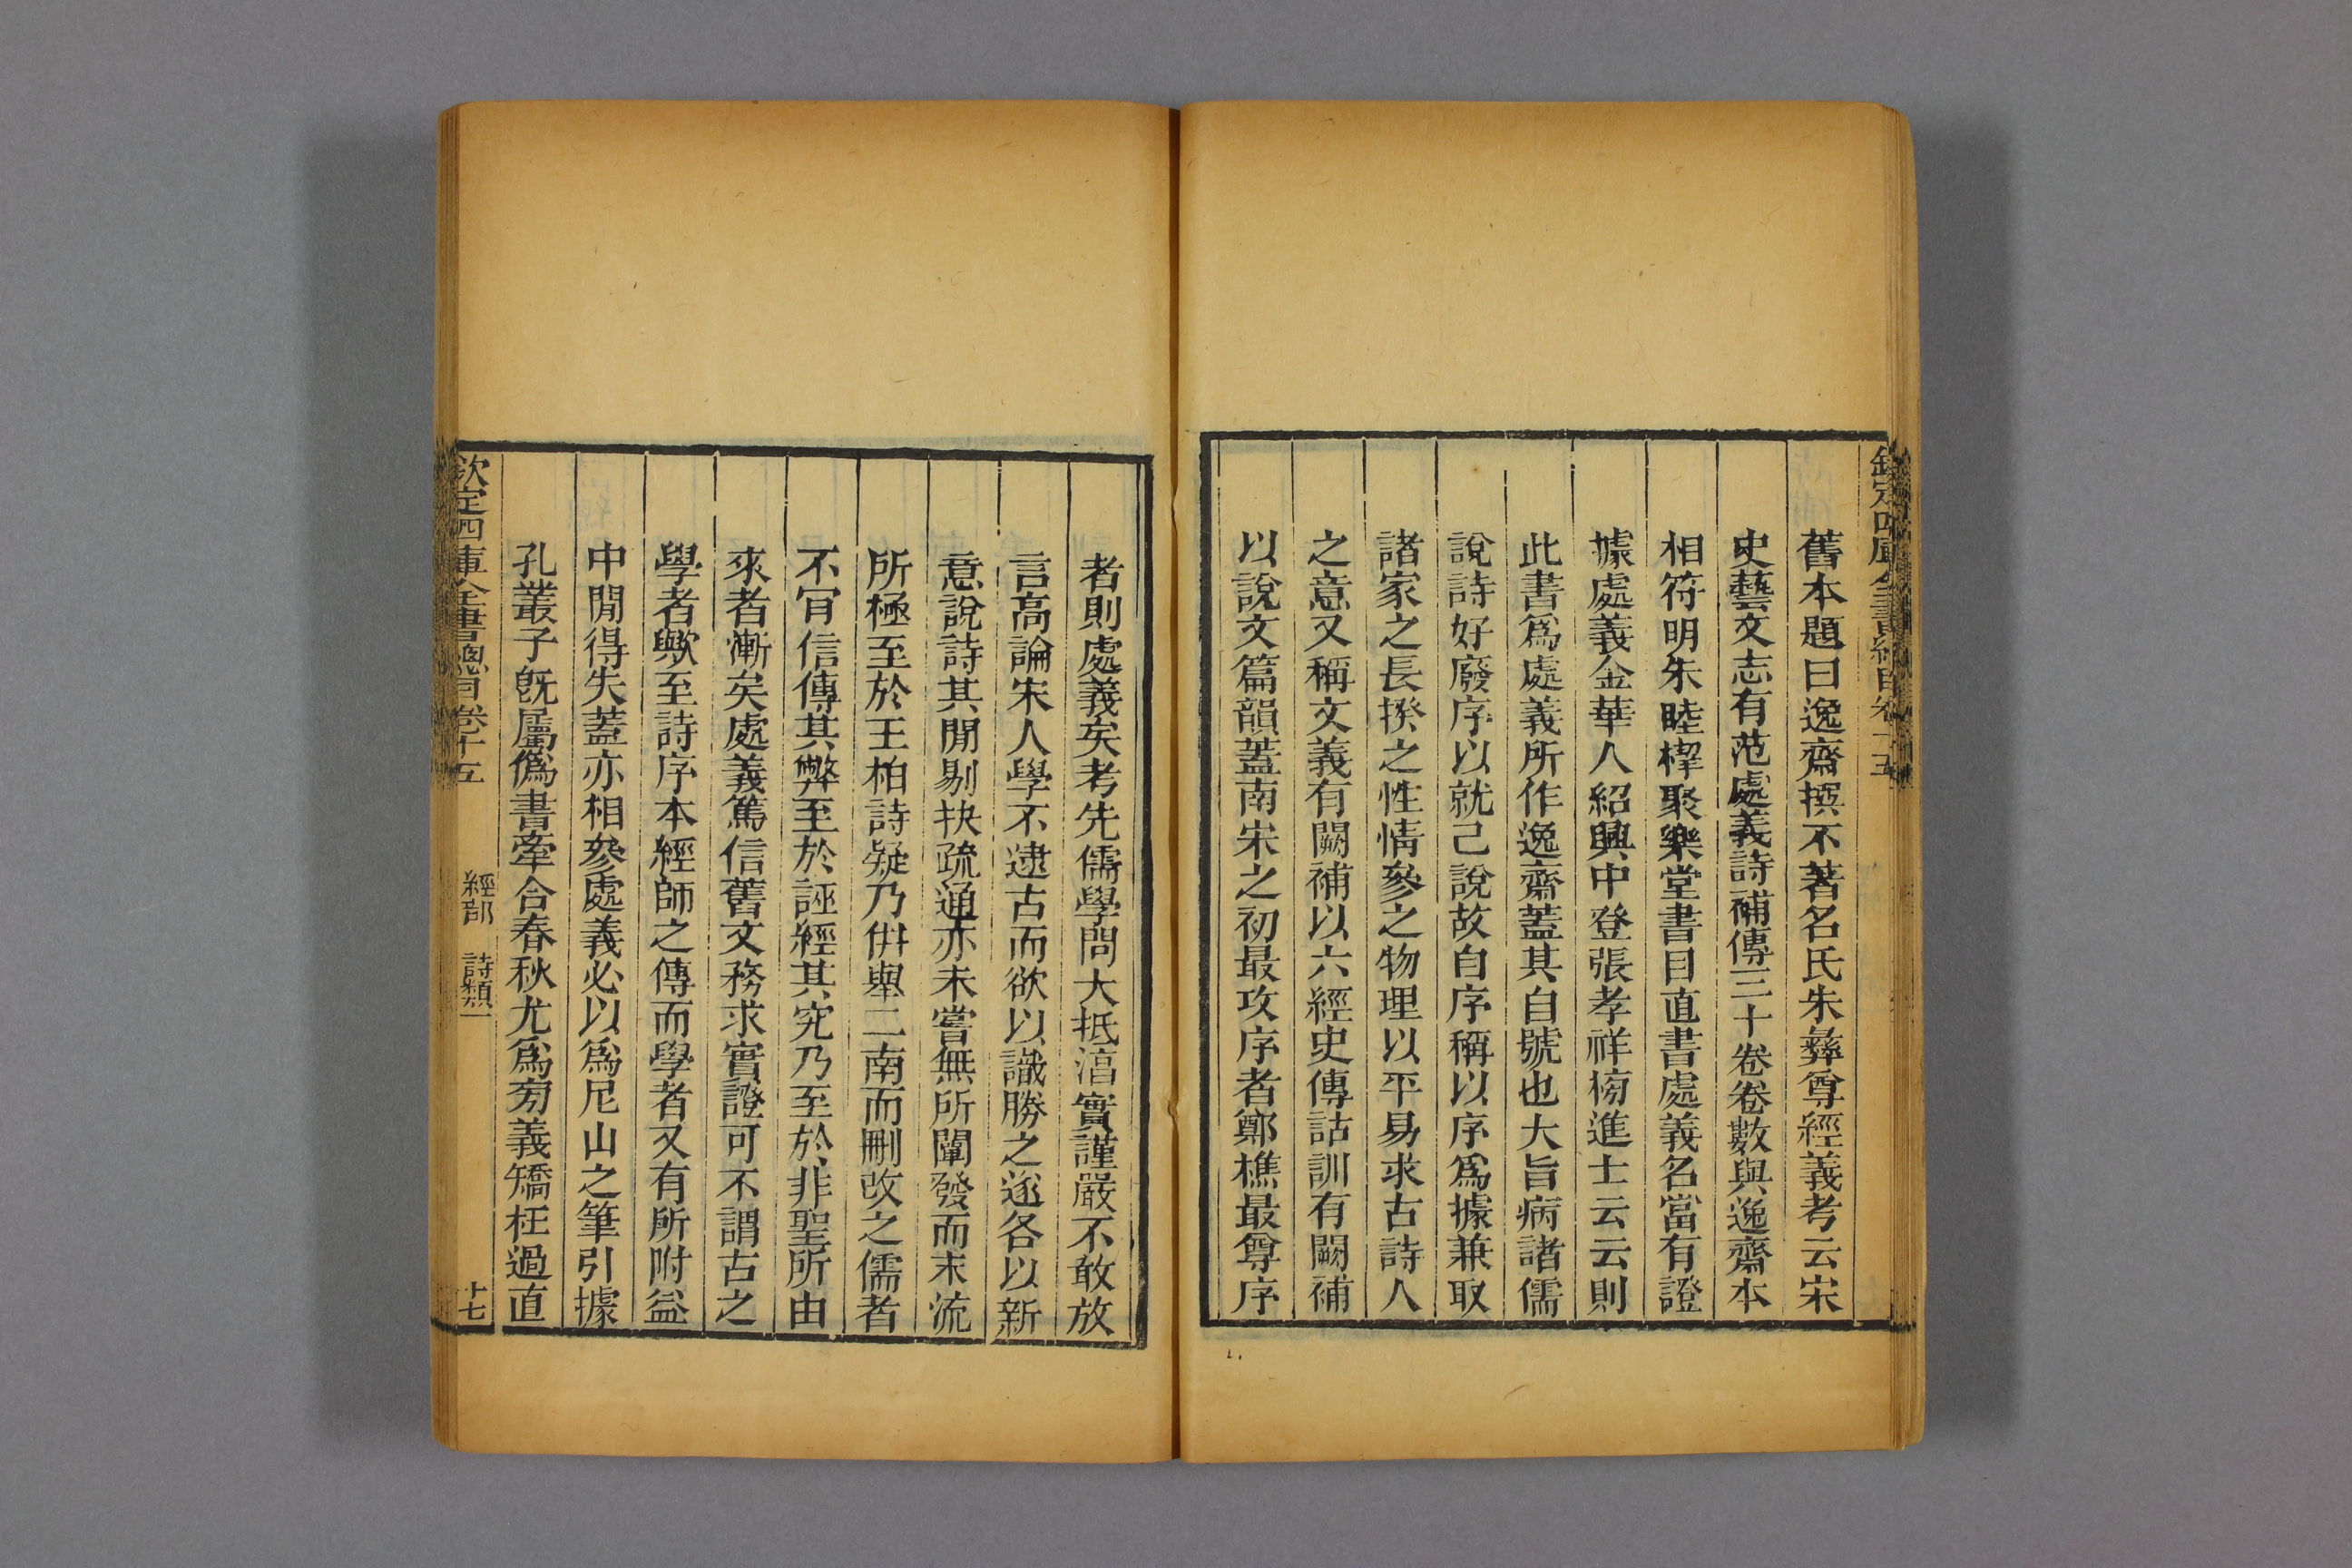 欽定四庫全書總目卷十五
舊本題曰逸齋撰不著名氏朱彝尊經義考云宋
史藝文志有范處義詩補傳三十卷卷數與逸齋本
相符明朱睦㮮聚樂堂書目直書處義名當有證
據處義金華人紹興中登張孝祥榜進士云云則
此書爲處義所作逸齋蓋其自號也大旨病諸儒
說詩好廢序以就己說故自序稱以序爲據兼取
諸家之長揆之性情參之物理以平易求古詩人
之意又稱文義有闕補以六經史傳詁訓有闕補
以說文篇韻蓋南宋之初最攻序者鄭樵最尊序
者則處義矣考先儒學問大抵淳實謹嚴不敢放
言高論宋人學不逮古而欲以識勝之遂各以新
意說詩其閒剔抉疏通亦未嘗無所闡發而末流
所極至於王柏詩疑乃併舉二南而刪改之儒者
不肎信傳其弊至於誣經其究乃至於非聖所由
來者漸矣處義篤信舊文務求實證可不謂古之
學者歟至詩序本經師之傳而學者又有所附益
中閒得失蓋亦相參處義必以爲尼山之筆引據
孔叢子旣屬僞書牽合春秋尤爲旁義矯枉過直
欽定四庫全書總目卷十五 經部 詩類一 十七